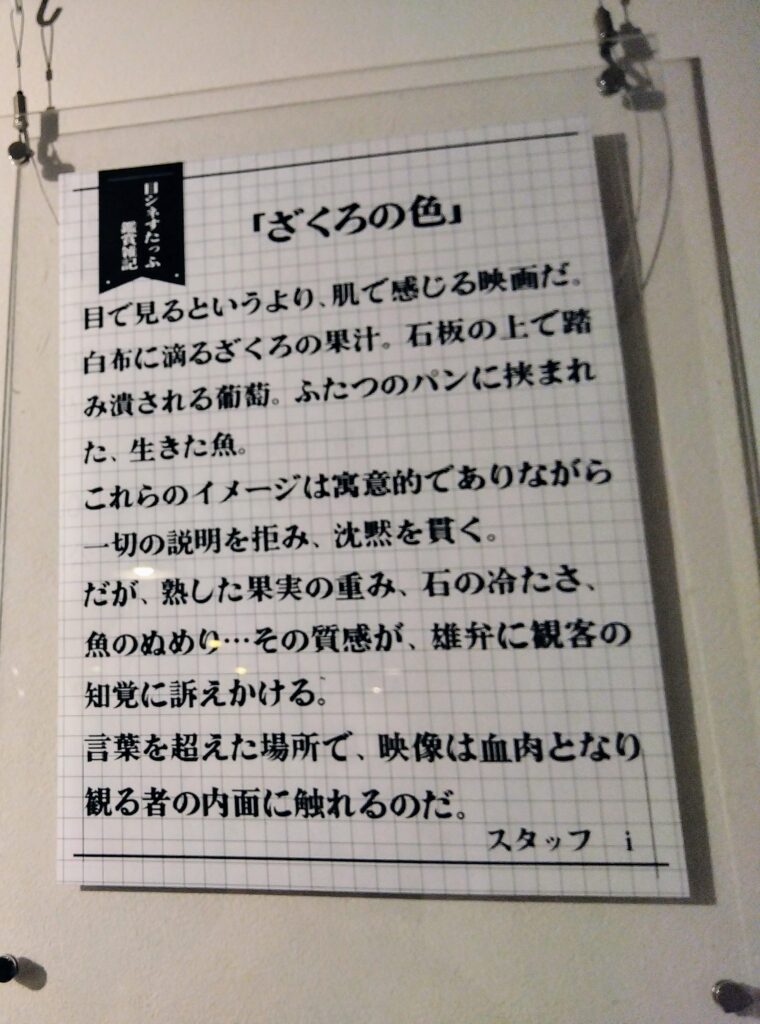 日シネすたっふ
鑑賞雑記
「ざくろの色」
目で見るというより、肌で感じる映画だ。
白布に滴るざくろの果汁。石板の上で踏
み潰される葡萄。ふたつのパンに挟まれ
た、生きた魚。
これらのイメージは寓意的でありながら
一切の説明を拒み、沈黙を貫く。
だが、熟した果実の重み、石の冷たさ、
魚のぬめり…その質感が、雄弁に観客の
知覚に訴えかける。
言葉を超えた場所で、映像は血肉となり
観る者の内面に触れるのだ。
スタッフ　i